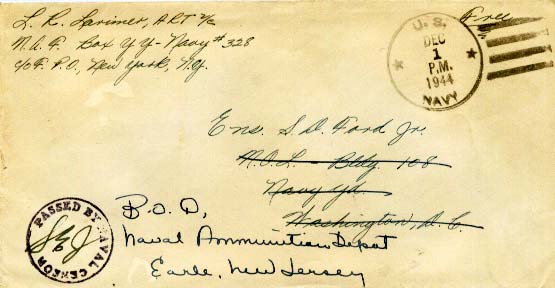 L. R. Larimer, ART 2/c
N.A.F. Box YY - Navy # 328
c/o F.P.O., New York, N.Y.
Free
U.S.
DEC
1
P.M.
1944
NAVY
Ens. S. D. Ford Jr.
N.O.L. - Bldg. 108
Navy Yd.
Washington, D.C.
B.O.D,
Naval Ammunition Depot
Earle, New Jersey
PASSED BY NAVAL CENSOR